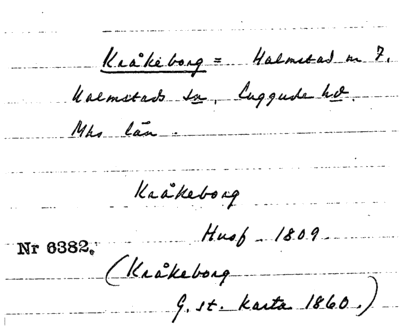 Kråkeborg = Halmstad nr 7.
Halmstads sn, Luggude hd.
Mhs län.
Kråkeborg
Husf 1809
Nr 6382.
(Kråkeborg
G. st. karta 1860.)